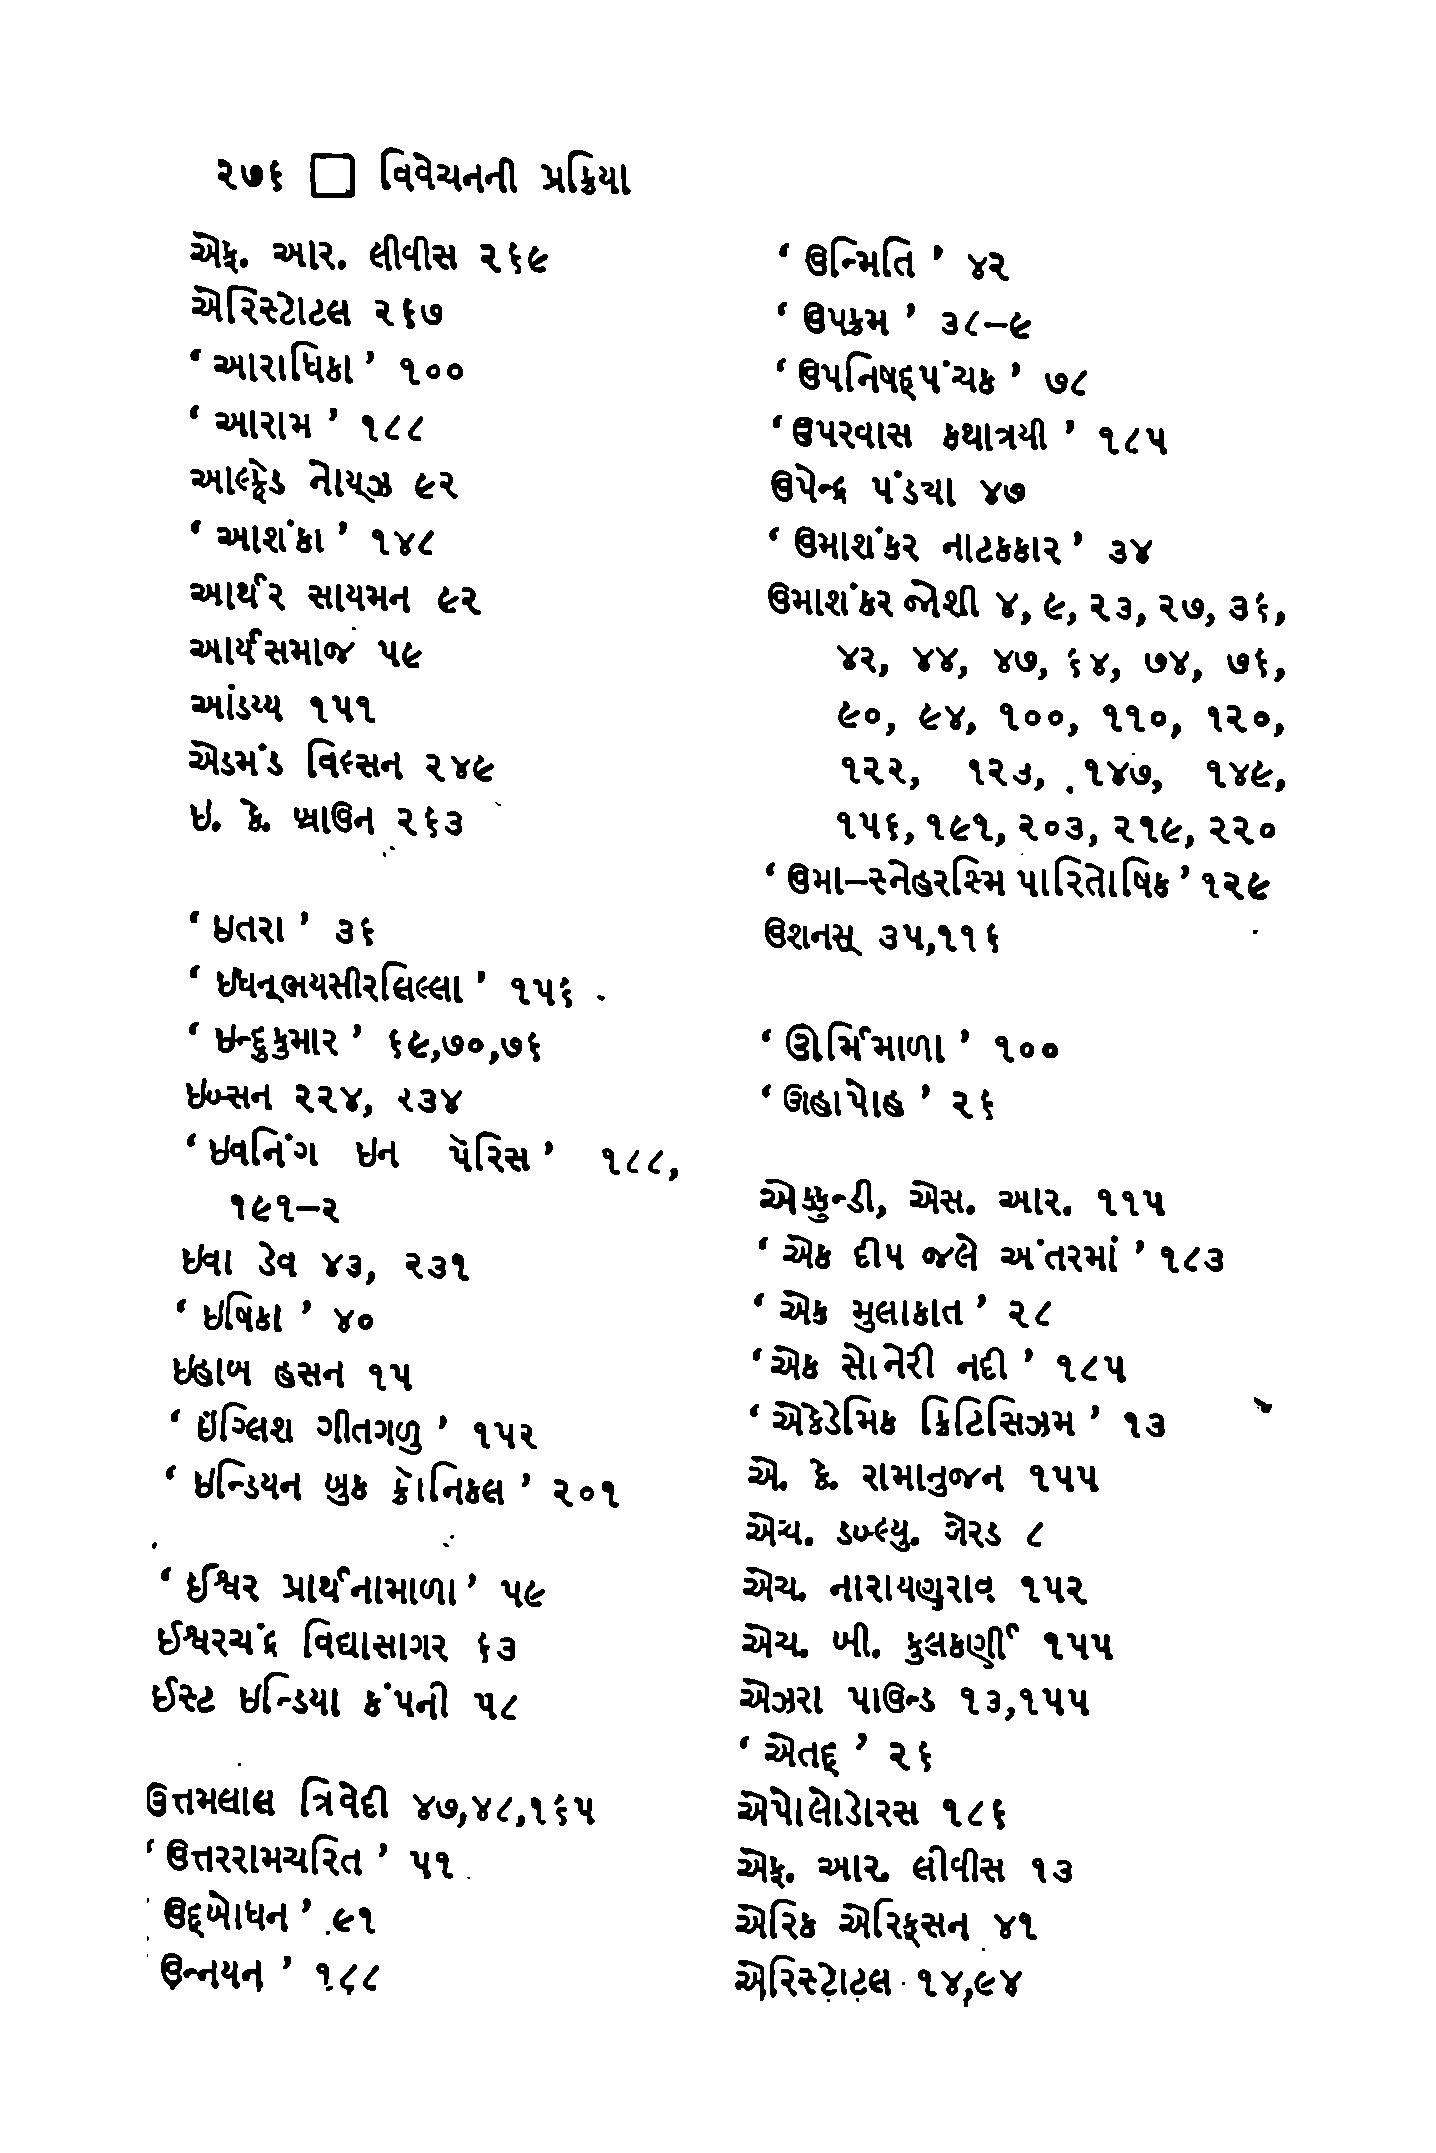 ૨૭૬ □ વિવેચનની પ્રક્રિયા
એફ. આર. લીવીસ ૨૬૯
ઍરિસ્ટોટલ ૨૬૭
‘ આરાધિકા ’ ૧૦૦
‘ આરામ ’ ૧૮૮
આલ્ફ્રેડ નોય્ઝ ૯૨
‘ આશંકા ’ ૧૪૮
આર્થર સાયમન ૯૨
આર્યસમાજ ૫૯
આંડય્ય ૧૫૧
એડમંડ વિલ્સન ૨૪૯
ઇ. કે. બ્રાઉન ૨૬૩
‘ ઇતરા ’ ૩૬
‘ ઇધનૂભયસીરલિલ્લા ’ ૧૫૬
‘ ઇન્દુકુમાર ’ ૬૯,૭૦,૭૬
ઇબ્સન ૨૨૪, ૨૩૪
‘ ઇવનિંગ ઇન પૅરિસ ’ ૧૮૮,
૧૯૧–૨
ઇવા ડેવ ૪૩, ૨૩૧
‘ ઇષિકા ’ ૪૦
ઇહાબ હસન ૧૫
‘ ઇંગ્લિશ ગીતગળુ ’ ૧૫૨
‘ ઇન્ડિયન બુક ક્રૉનિકલ ’ ૨૦૧
‘ ઈશ્વર પ્રાર્થનામાળા ’ ૫૯
ઈશ્વરચંદ્ર વિદ્યાસાગર ૬૩
ઈસ્ટ ઇન્ડિયા કંપની ૫૮
ઉત્તમલાલ ત્રિવેદી ૪૭,૪૮,૧૬૫
‘ ઉત્તરરામચરિત ’ ૫૧
ઉદ્‌બોધન ’ ૯૧
ઉન્નયન ’ ૧૮૮
‘ ઉન્મિતિ ’ ૪૨
‘ ઉપક્રમ ’ ૩૮–૯
‘ ઉપનિષદ્‌પંચક ’ ૭૮
‘ ઉપરવાસ કથાત્રયી ’ ૧૮૫
ઉપેન્દ્ર પંડ્યા ૪૭
‘ ઉમાશંકર નાટકકાર ’ ૩૪
ઉમાશંકર જોશી ૪, ૯, ૨૩, ૨૭, ૩૬,
૪૨, ૪૪, ૪૭, ૬૪, ૭૪, ૭૬,
૯૦, ૯૪, ૧૦૦, ૧૧૦, ૧૨૦,
૧૨૨, ૧૨૩, ૧૪૭, ૧૪૯,
૧૫૬, ૧૯૧, ૨૦૩, ૨૧૯, ૨૨૦
‘ ઉમા–સ્નેહરશ્મિ પારિતોષિક ’ ૧૨૯
ઉશનસ્ ૩૫,૧૧૬
‘ ઊર્મિમાળા ’ ૧૦૦
‘ ઊહાપોહ ’ ૨૬
એક્કુન્ડી, એસ. આર. ૧૧૫
‘ એક દીપ જલે અંતરમાં ’ ૧૮૩
‘ એક મુલાકાત ’ ૨૮
‘ એક સોનેરી નદી ’ ૧૮૫
‘ એકેડેમિક ક્રિટિસિઝમ ’ ૧૩
એ. કે. રામાનુજન ૧૫૫
એચ. ડબ્લ્યુ. ગેરડ ૮
એચ. નારાયણરાવ ૧૫૨
એચ. બી. કુલકર્ણી ૧૫૫
એઝરા પાઉન્ડ ૧૩,૧૫૫
‘ એતદ્ ’ ૨૬
એપોલોડોરસ ૧૮૬
એફ. આર. લીવીસ ૧૩
એરિક એરિક્સન ૪૧
ઍરિસ્ટોટલ ૧૪,૯૪